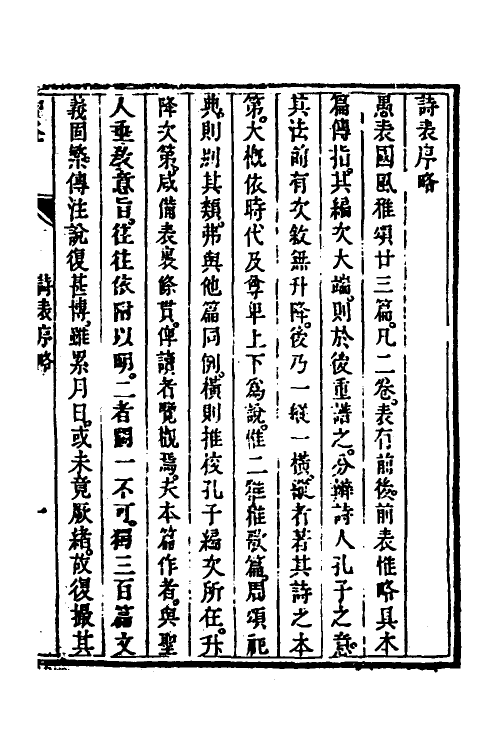 詩表序略
愚表國風雅頌廿三篇。凡二卷。表有前後。前表惟略具本
篇傳指。其編次大端。則於後重譜之。分辨詩人孔子之意。
其法前有次敘無升降。後乃一縱一橫。縱者著其詩之本
第。大槪依時代及尊卑上下爲說。惟二雅雅歌篇。周頌祀
典。則別其類。弗與他篇同例。橫則推校孔子編次所在。升
降次第。咸備表裏條貫。俾讀者覽槪焉。夫本篇作者。與聖
人垂敎意旨。往往依附以明。二者闕一不可。獨三百篇文
義固繁。傳注說復甚博。雖累月日。或未竟厥緒。故復撮其
詩表序略